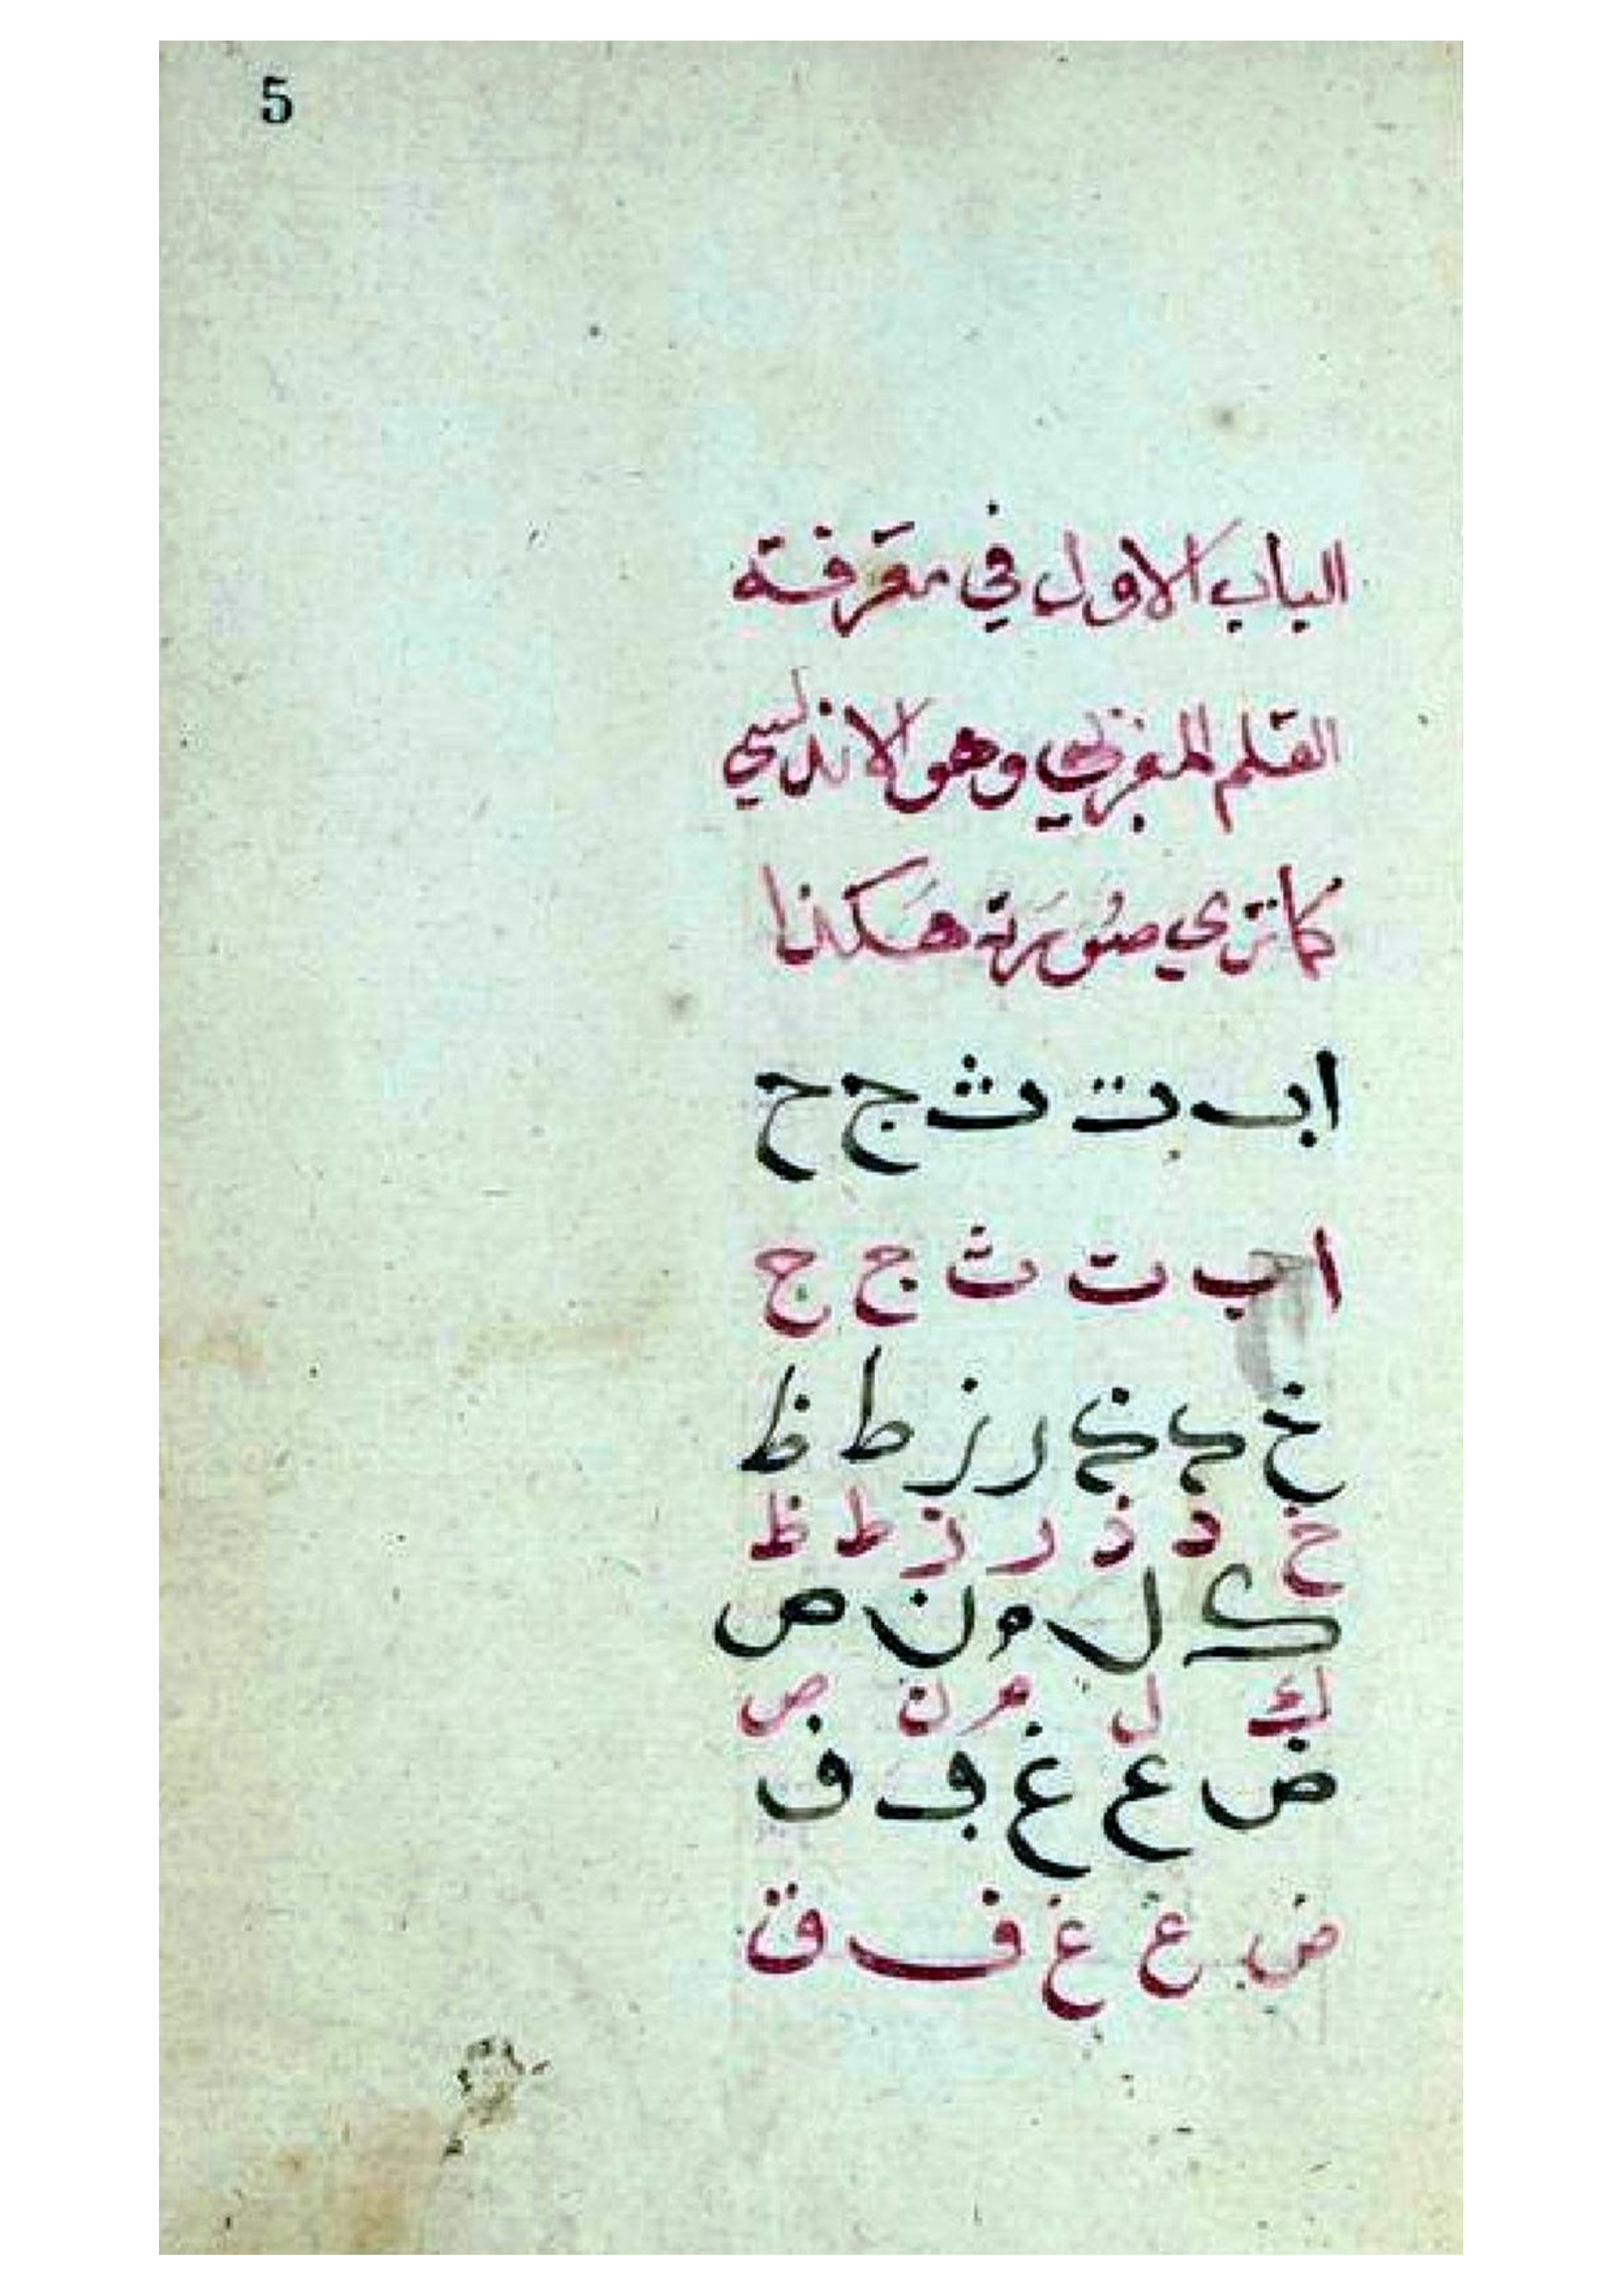 5
الباب الاول في معرفة
القلم المغربي وهو الاندلسي
كما تري صُورَته هَكذا
ا ب ت ث ج ح
ا ب ت ث ج ج
خ د ذ ر ز ط ظ
خ د ذ ر ز ط ظ
ك ل م ن ص
ك ل م ن ص
ض ع غ ڢ ف
ض ع غ ف ق